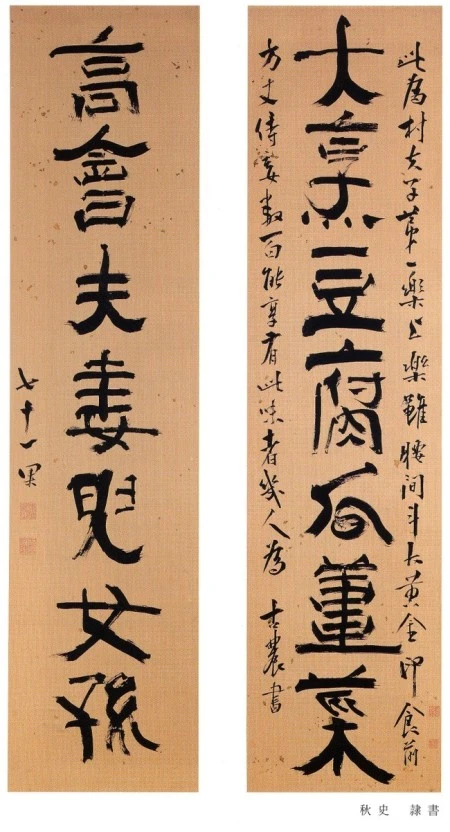 大烹豆腐瓜薑菜
此為村夫子第一樂上樂雖腰間斗大黃金印食前
方丈侍妾數百能享有此味者幾人為 古農書
高會夫妻兒女孫
七十一果
秋史 隷書